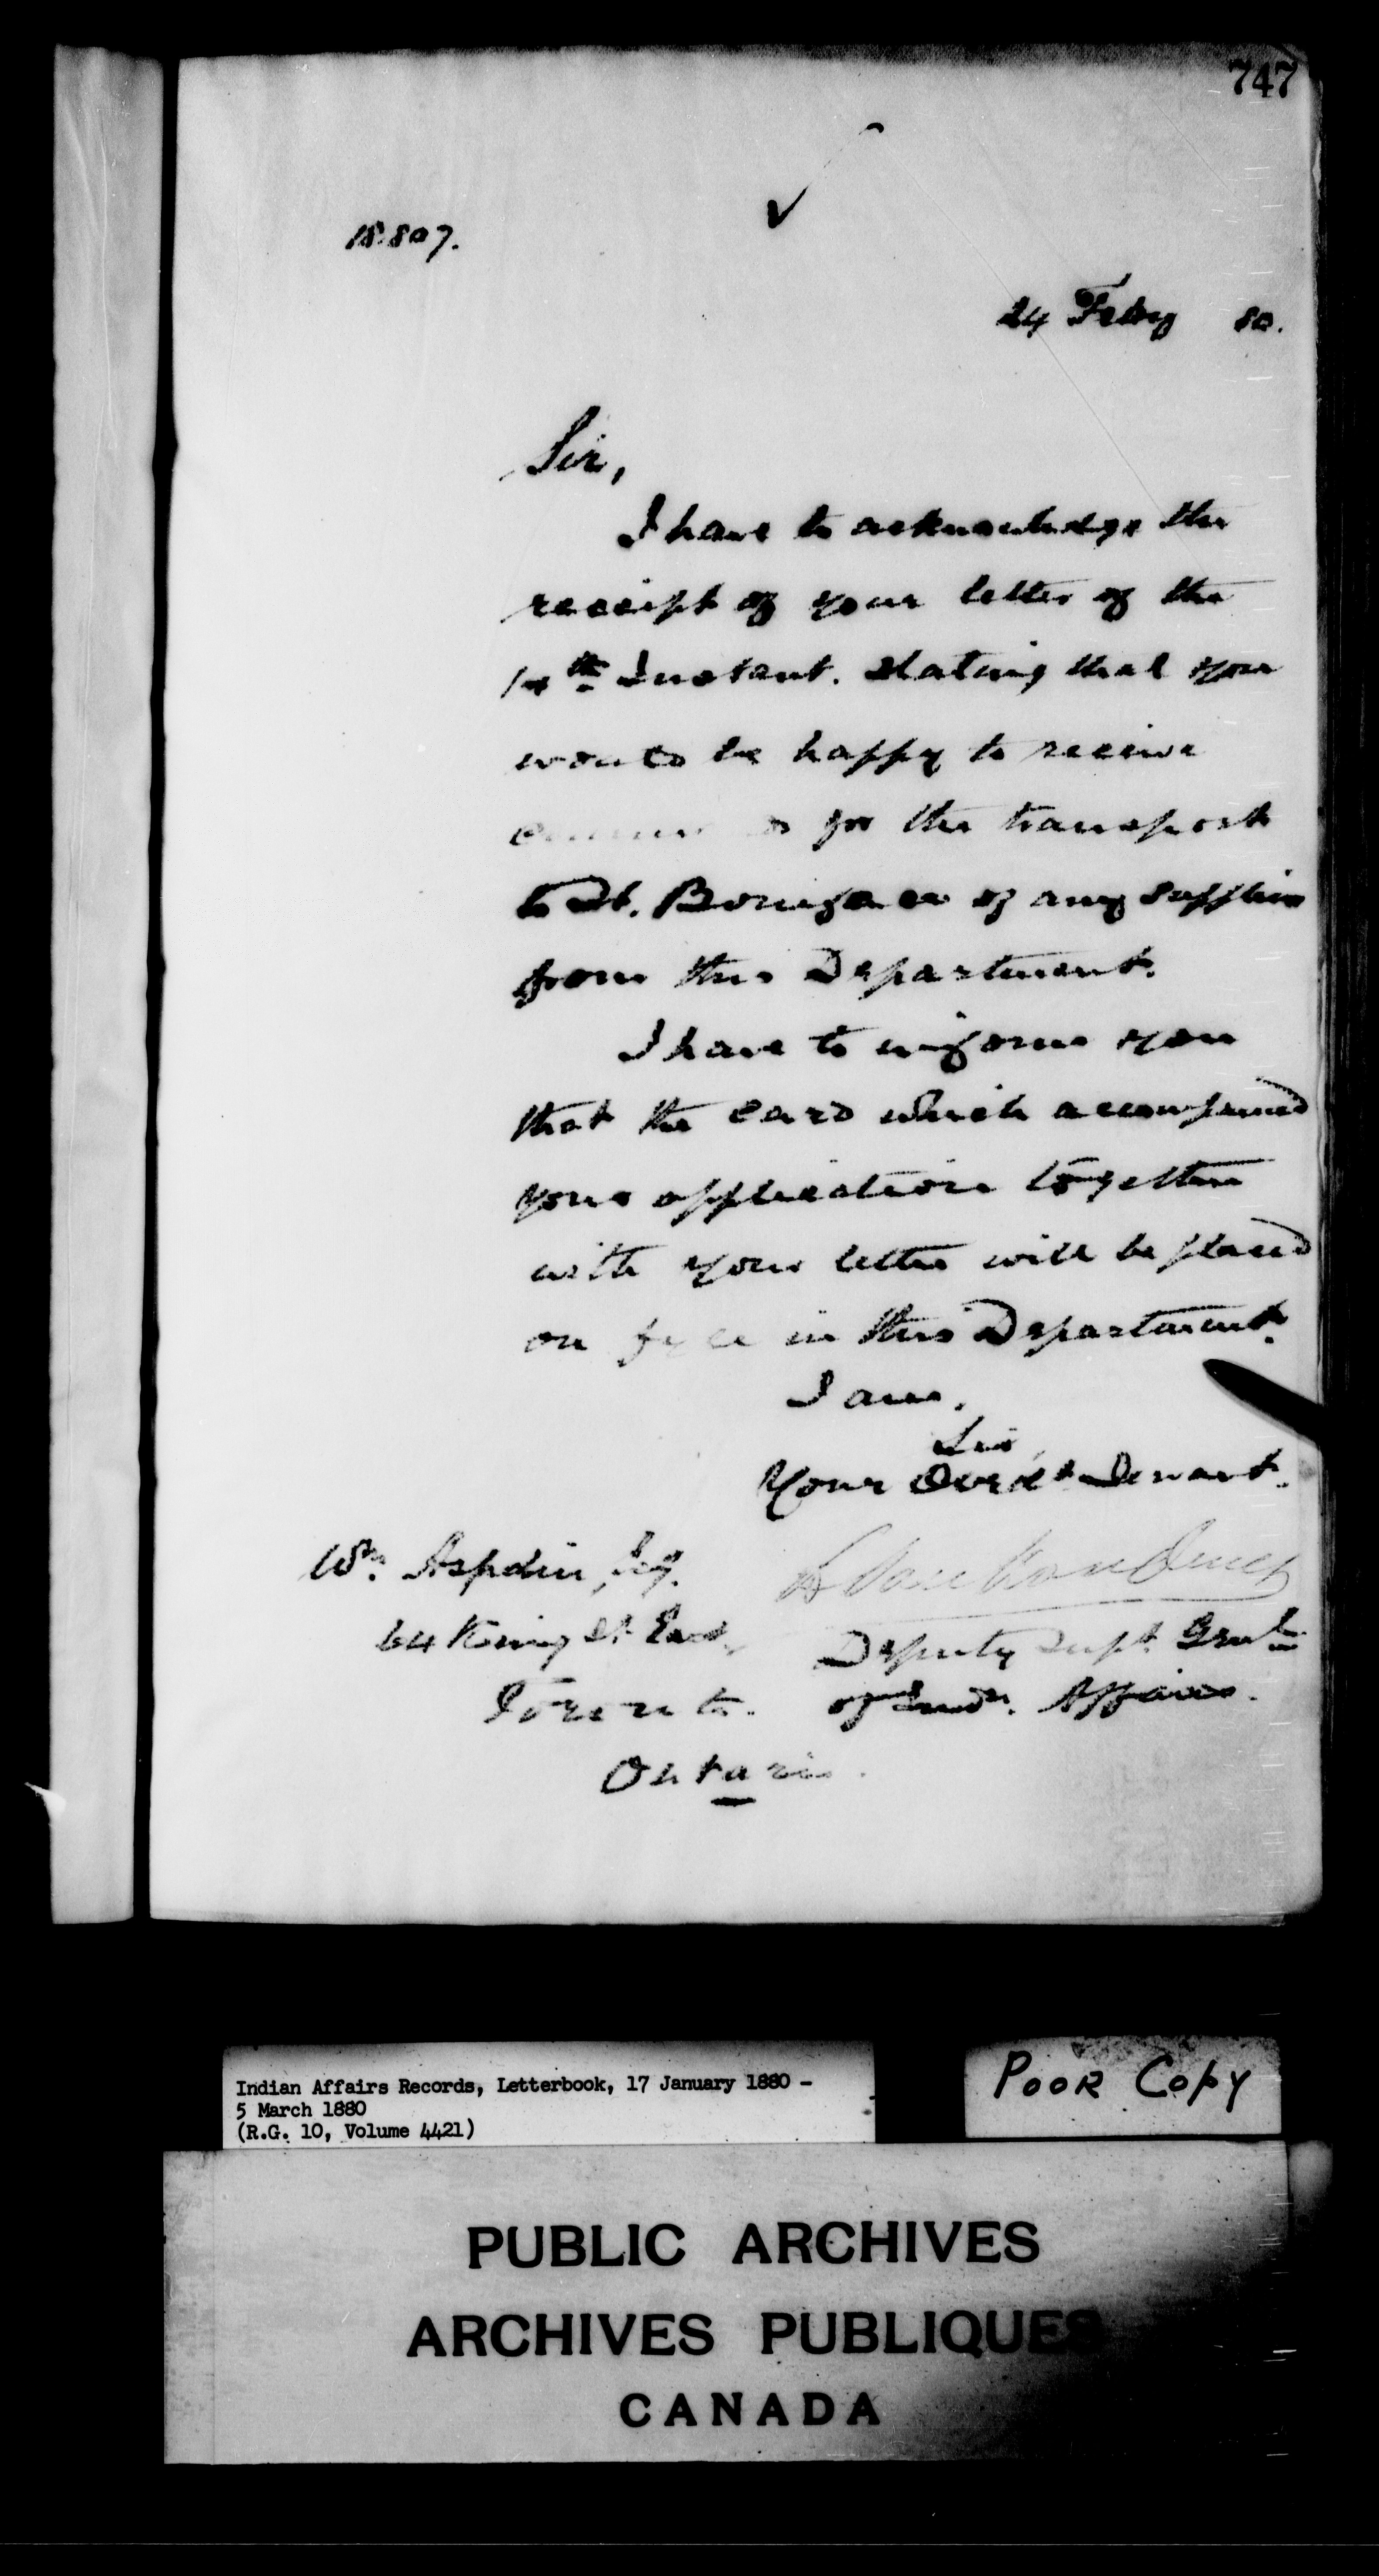 747
18807.
24 Feby 80.
Sir,
I have to acknowledge the
receipt of your letter of the
14th Instant. Stating that you
would be happy to receive
for the transport
to St. Boniface of any supplies
from this Department.
I have to inform you
that the card which accompanied
your application together
with your letter will be placed
on fyle in this Department.
I am,
Sir,
Your Obedt Servant.
Wm. Aspdin, Esq.
64 King St. East,
Toronto.
Ontario.
L Van Koughnet
Deputy Supt. Genl
of Indn. Affairs.
Indian Affairs Records, Letterbook, 17 January 1880 -
5 March 1880
(R.G. 10, Volume 4421)
POOR COPY
PUBLIC ARCHIVES
ARCHIVES PUBLIQUES
CANADA